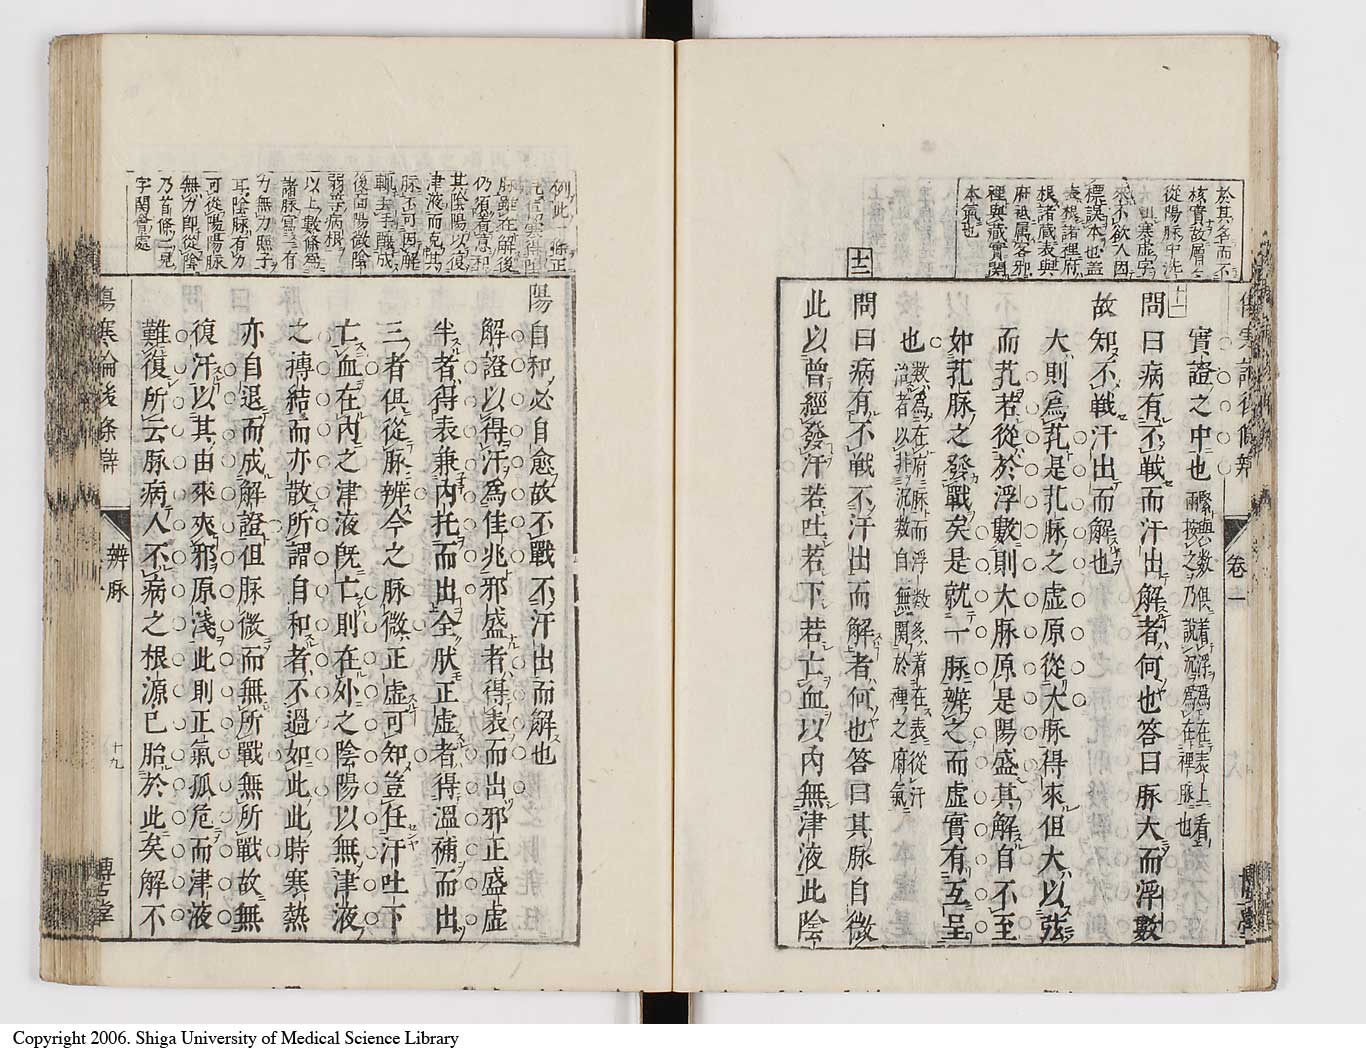 於其名而不
核實故層々
從陽脉中洗
出寒虛字
來不欲人因
標誤本也蓋
表根諸裡府
根諸藏表與
府祗属客邪
裡與藏實関
本氣也
卷一
實證之中也 緊與數俱着浮爲在表上看
兩按之乃説沉爲在裡脉也
十一
問曰病有不戰而汗出解者何也答曰脉大而浮數
故知不戰汗出而解也
大則爲芤是芤脉之虛原從大脉得來但大以弦
而芤若從於浮數則大脉原是陽盛其解自不至
如芤脉之發戰矣是就一脉辨之而虛實有互呈
也 數爲在府脉而浮數多着在表從汗
治者以非沉數自無関於裡之府氣
十二
問曰病有不戰不汗出而解者何也答曰其脉自微
此以曾經發汗若吐若下若亡血以內無津液此陰
例此一條正
脉雖在解後
仍須着意和
其陰陽以復
津液而克其
脉不可因解
輒去手醸成
後面陽微陰
弱等病根
以上數條爲
諸脉寫三有
力無力照子
耳陰脉有力
可從陽陽脉
無力即從陰
乃首條二見
字関會處
陽自和必自愈故不戰不汗出而解也
解證以得汗爲佳兆邪盛者得表而出邪正盛虛
半者得表兼內托而出全肰正虛者得溫補而出
三者俱從脉辨今之脉微正虛可知豈任汗吐下
亡血在內之津液既亡則在外之陰陽以無津液
之摶結而亦散所謂自和者不過如此此時寒熱
亦自退而成解證但脉微而無所戰無所戰故無
復汗以其由來夾邪原淺此則正氣孤危而津液
難復所云脉病人不病之根源已胎於此矣解不
傷寒論後條辨
辨脉
十九
博古堂
Copyright 2006. Shiga University of Medical Science Library